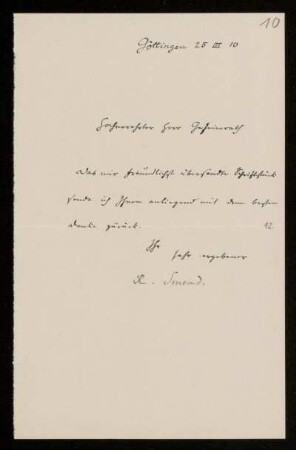 10
Göttingen 25 III 10
Hochverehrter Herr Geheimrath
Das mir freundlichst übersandte Schriftstück
sende ich Ihnen anliegend mit dem besten
Danke zurück. 12
Ihr
sehr ergebener
R. Smend.